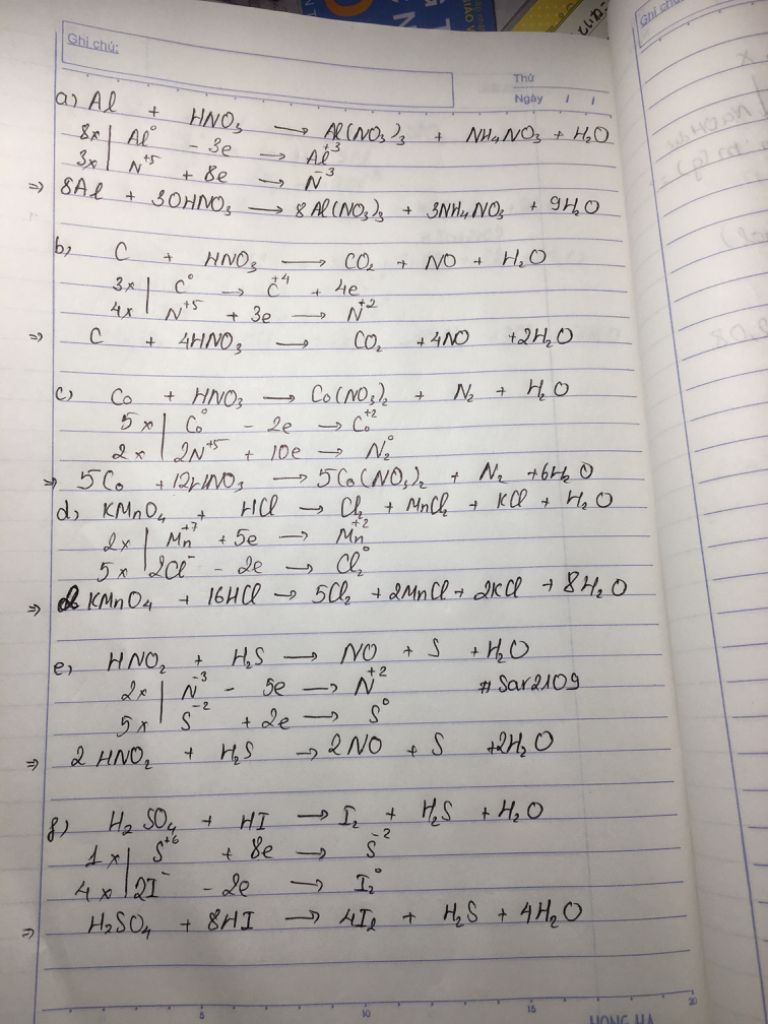 Ghi chú:
Thứ
Ngày / /
a) Al + HNO₃ → Al(NO₃)₃ + NH₄NO₃ + H₂O
8x | Al⁰ - 3e → Al⁺³
3x | N⁺⁵ + 8e → N⁻³
⇒ 8Al + 30HNO₃ → 8Al(NO₃)₃ + 3NH₄NO₃ + 9H₂O
b) C + HNO₃ → CO₂ + NO + H₂O
3x | C⁰ → C⁺⁴ + 4e
4x | N⁺⁵ + 3e → N⁺²
⇒ C + 4HNO₃ → CO₂ + 4NO + 2H₂O
c) Co + HNO₃ → Co(NO₃)₂ + N₂ + H₂O
5x | Co⁰ - 2e → Co⁺²
2x | 2N⁺⁵ + 10e → N₂⁰
⇒ 5Co + 12HNO₃ → 5Co(NO₃)₂ + N₂ + 6H₂O
d) KMnO₄ + HCl → Cl₂ + MnCl₂ + KCl + H₂O
2x | Mn⁺⁷ + 5e → Mn⁺²
5x | 2Cl⁻ - 2e → Cl₂⁰
⇒ 2KMnO₄ + 16HCl → 5Cl₂ + 2MnCl + 2KCl + 8H₂O
e) HNO₂ + H₂S → NO + S + H₂O
2x | N⁻³ - 5e → N⁺² #Sar2109
5x | S⁻² + 2e → S⁰
⇒ 2HNO₂ + H₂S → 2NO + S + 2H₂O
f) H₂SO₄ + HI → I₂ + H₂S + H₂O
1x | S⁺⁶ + 8e → S⁻²
4x | 2I⁻ - 2e → I₂⁰
⇒ H₂SO₄ + 8HI → 4I₂ + H₂S + 4H₂O
5 10 15 20
HONG HA